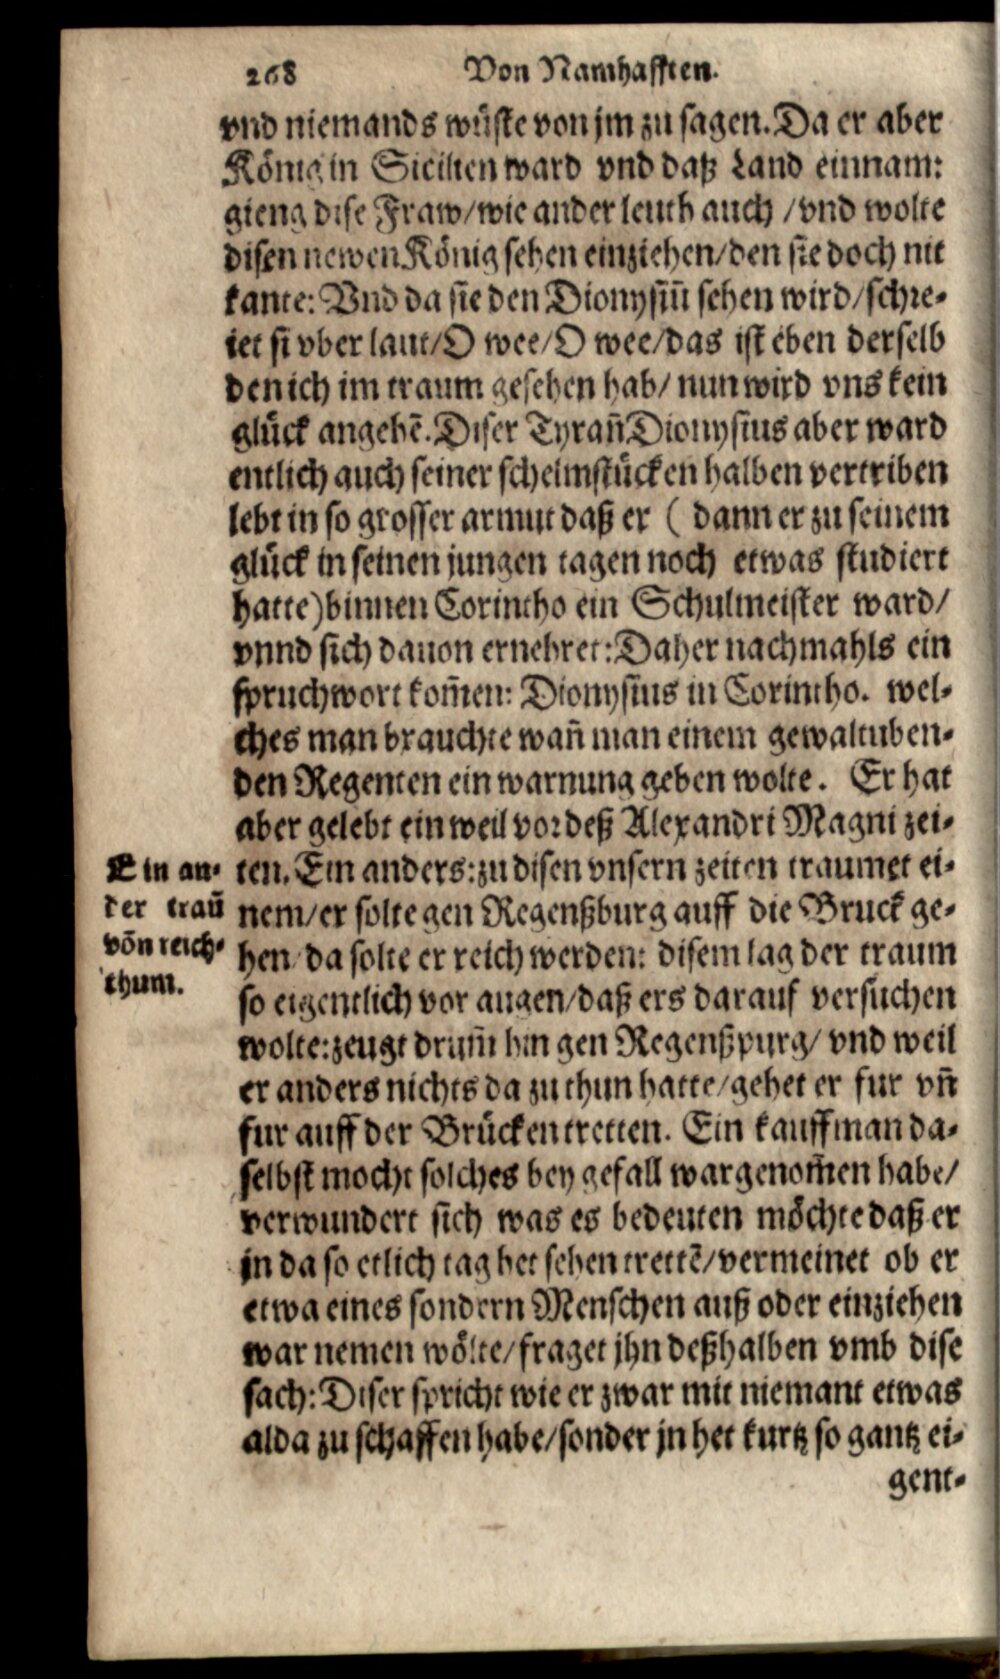 268 Von Namhafften.
vnd niemands wüste von jm zu sagen. Da er aber
König in Sicilien ward vnd daß Land einnam:
gieng dise Fraw/wie ander leuth auch /vnd wolte
disen newen König sehen einziehen/den sie doch nit
kante: Vnd da sie den Dionysiū sehen wird/schre-
iet si vber laut/O wee/O wee/das ist eben derselb
den ich im traum gesehen hab/ nun wird vns kein
glück angehē. Diser Tyrañ Dionysius aber ward
entlich auch seiner schelmstücken halben vertriben
lebt in so grosser armut daß er ( dann er zu seinem
glück in seinen jungen tagen noch etwas studiert
hatte) binnen Corintho ein Schulmeister ward/
vnnd sich dauon ernehret: Daher nachmahls ein
spruchwort kom̃en: Dionysius in Corintho. wel-
ches man brauchte wañ man einem gewaltuben-
den Regenten ein warnung geben wolte. Er hat
aber gelebt ein weil vor deß Alexandri Magni zei-
ten. Ein anders: zu disen vnsern zeiten traumet ei-
nem/er solte gen Regenßburg auff die Bruck ge-
hen/da solte er reich werden: disem lag der traum
so eigentlich vor augen/daß ers darauf versuchen
wolte: zeugt drum̃ hin gen Regenßpurg/ vnd weil
er anders nichts da zu thun hatte/gehet er fur vñ
fur auff der Brücken tretten. Ein kauffman da-
selbst mocht solches bey gefall wargenom̃en habe/
verwundert sich was es bedeuten möchte daß er
jn da so etlich tag het sehen trettē/vermeinet ob er
etwa eines sondern Menschen auß oder einziehen
war nemen wölte/fraget jhn deßhalben vmb dise
sach: Diser spricht wie er zwar mit niemant etwas
alda zu schaffen habe/sonder jn het kurtz so gantz ei-
gent-
Ein an-
der traū
võn reich-
thum.